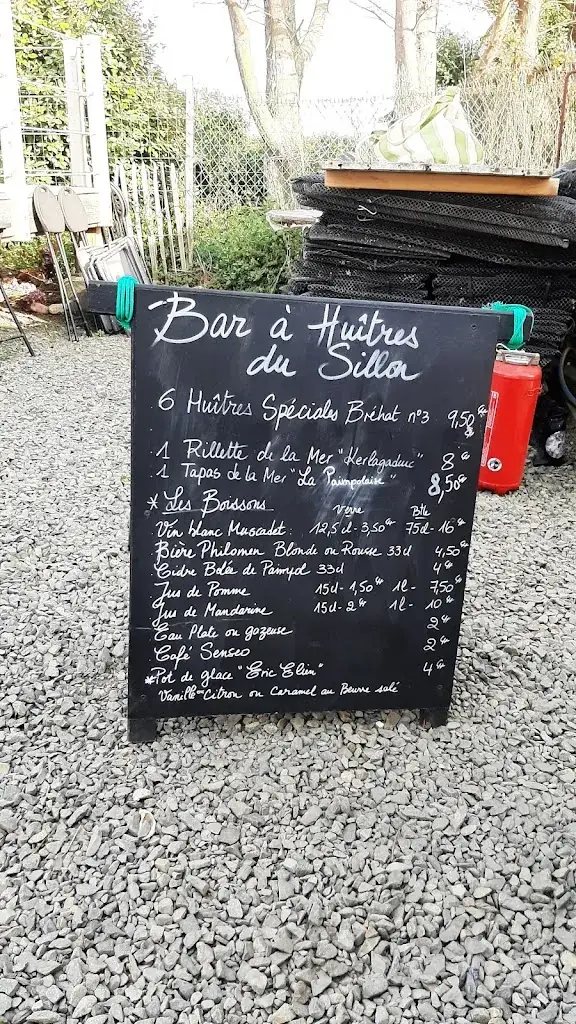 Bar à Huîtres
du Sillon
6 Huîtres Spéciales Bréhat n°3 9,50€
1 Rillette de la Mer "Kerlagadec" 8€
1 Tapas de la Mer "La Paimpolaise" 8,50€
* Les Boissons Verre Btle
Vin blanc Muscadet: 12,5cl - 3,50€ 75cl - 16€
Bière Philomen Blonde ou Rousse 33cl 4,50€
Cidre Bolée de Paimpol 33cl 4€
Jus de Pomme 15cl - 1,50€ 1l - 7,50€
Jus de Mandarine 15cl - 2€ 1l - 10€
Eau Plate ou gazeuse 2€
Café Senseo 2€
* Pot de glace "Eric Elien" 4€
Vanille - Citron ou Caramel au Beurre salé